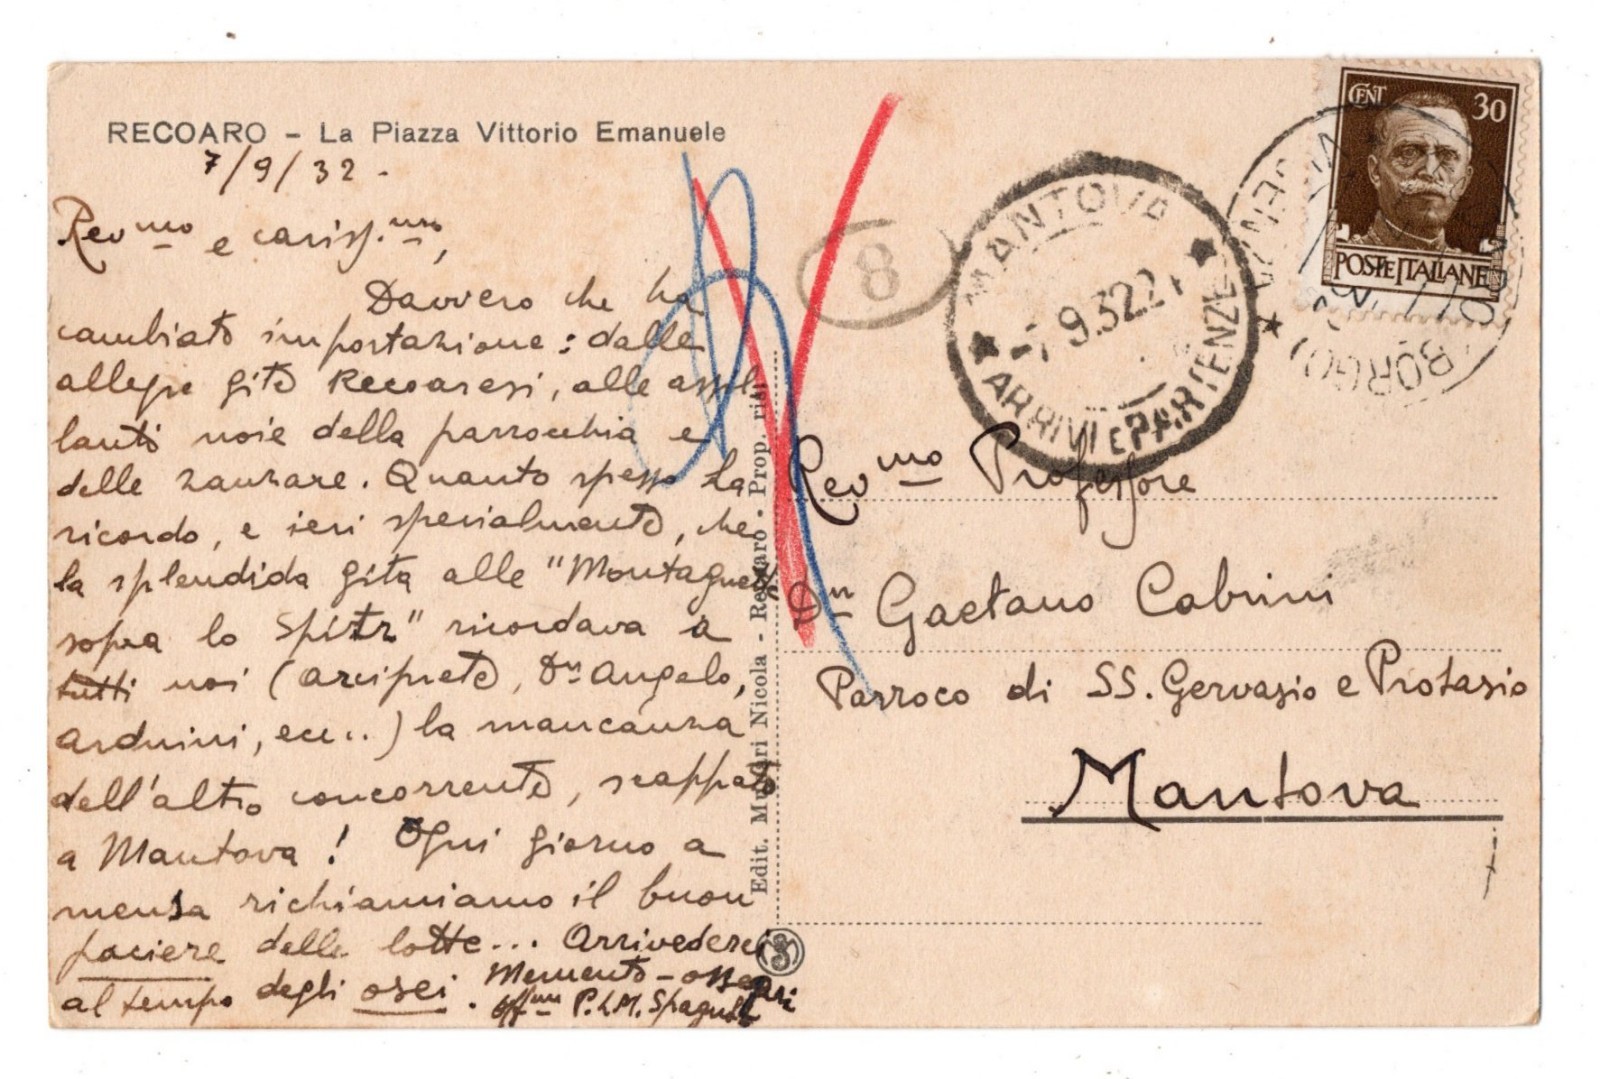 RECOARO - La Piazza Vittorio Emanuele
7/9/32.
Rev.mo e cariss.mo,
Davvero che ha
cambiato importazione: dalle
allegre gite Recoaresi, alle assil
lanti noie della parrocchia e
delle zanzare. Quanto spesso La
ricordo, e ieri specialmente, che
la splendida gita alle "Montagnole
sopra lo Spitz" ricordava a
tutti noi (arciprete, Dn Angelo,
Arduini, ecc..) la mancanza
dell'altro concorrente, scappato
a Mantova! Ogni giorno a
mensa richiamiamo il buon
paciere delle lotte... Arrivederci
al tempo degli osei. Memento-ossequi
aff.mo P. L. M.
Edit. Nicola - Recoaro - Prop. ris.
3
8
MANTOVA
-7.9.32.21
ARRIVI E PARTENZE
CENT 30
POSTE ITALIANE
Rev.mo Professore
Dn Gaetano Cabrini
Parroco di SS. Gervasio e Protasio
Mantova